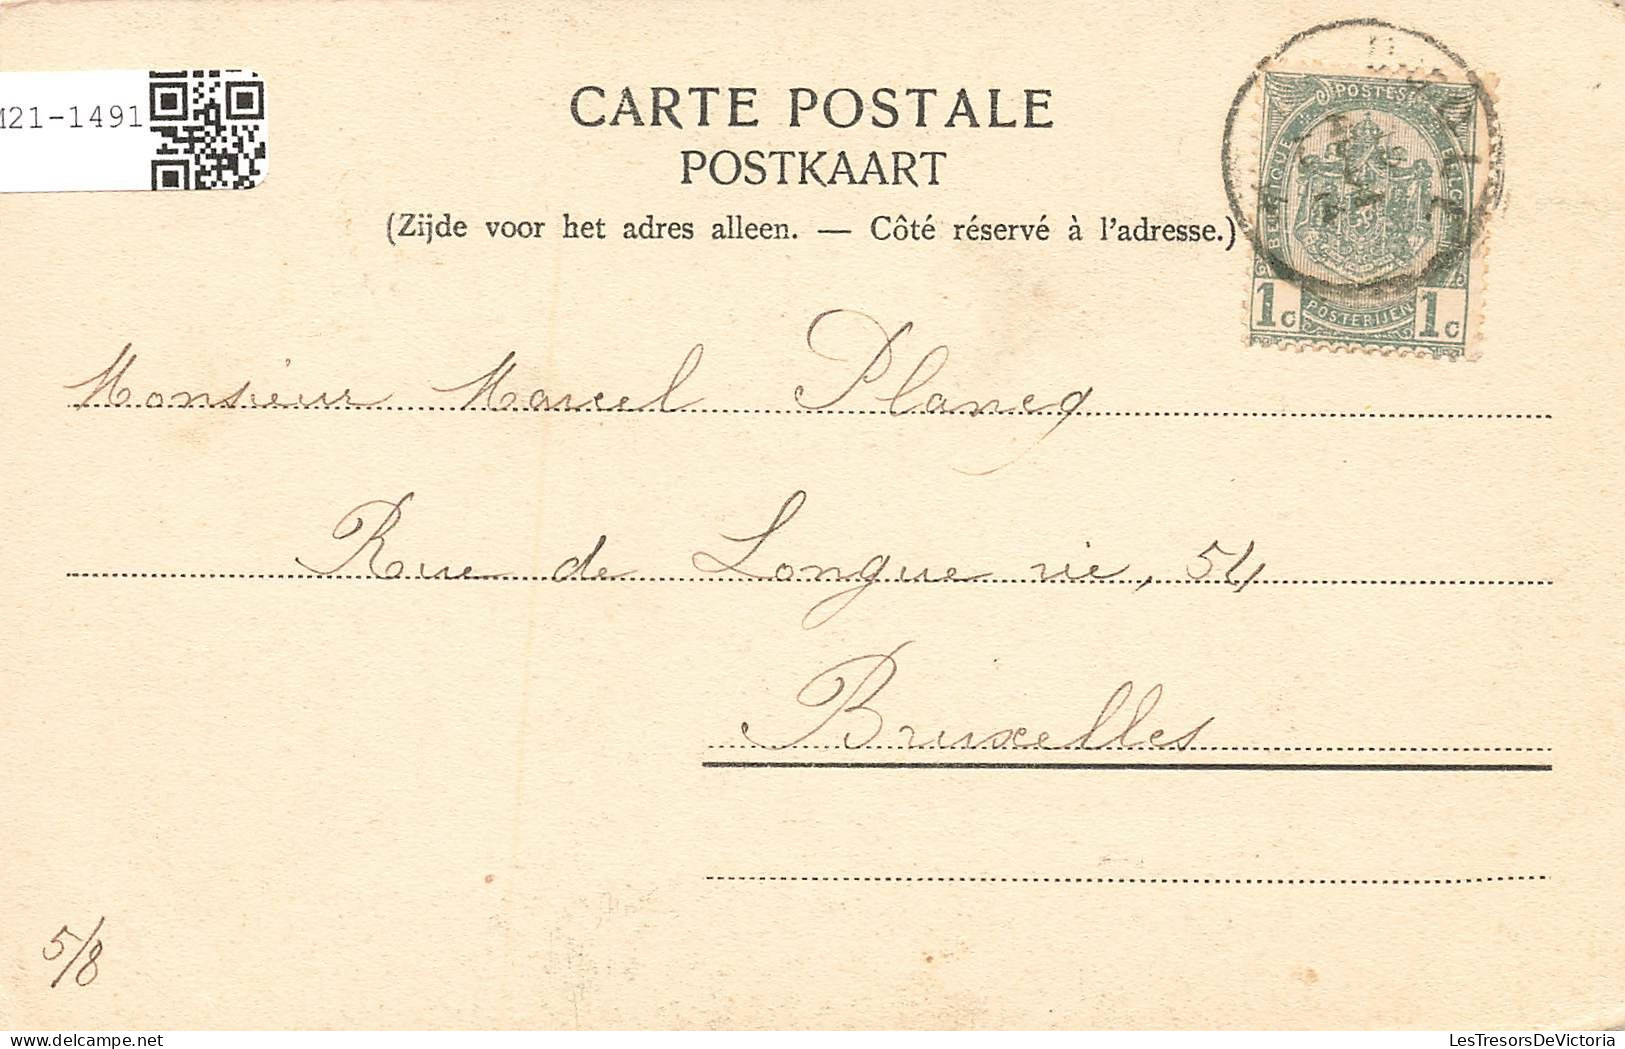 M21-1491
CARTE POSTALE
POSTKAART
(Zijde voor het adres alleen. — Côté réservé à l'adresse.)
POSTES
BELGIQUE
BELGIE
1c
POSTERIJEN
1c
Monsieur Marcel Plancq
Rue de Longue vie, 54
Bruxelles
5/8
LesTresorsDeVictoria